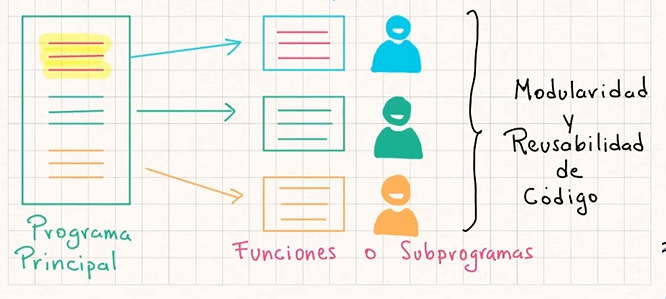 Programa
Principal
Funciones o Subprogramas
Modularidad
y
Reusabilidad
de
Código